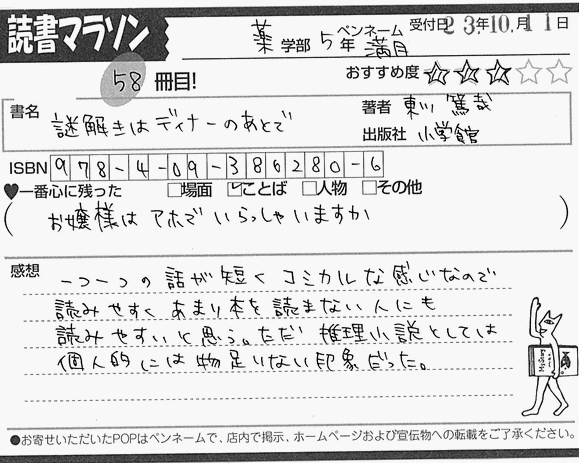 読書マラソン
薬 学部 5 年 ペンネーム 満月 受付日 23年10月11日
58 冊目!
おすすめ度 ★★★☆☆
書名 謎解きはディナーのあとで
著者 東川 篤哉
出版社 小学館
ISBN 978-4-09-386280-6
♥一番心に残った □場面 ☑ことば □人物 □その他
(お嬢様はアホでいらっしゃいますか)
感想
一つ一つの話が短くコミカルな感じなので
読みやすくあまり本を読まない人にも
読みやすいと思う。ただ推理小説としては
個人的には物足りない印象だった。
●お寄せいただいたPOPはペンネームで、店内で掲示、ホームページおよび宣伝物への転載をご了承ください。